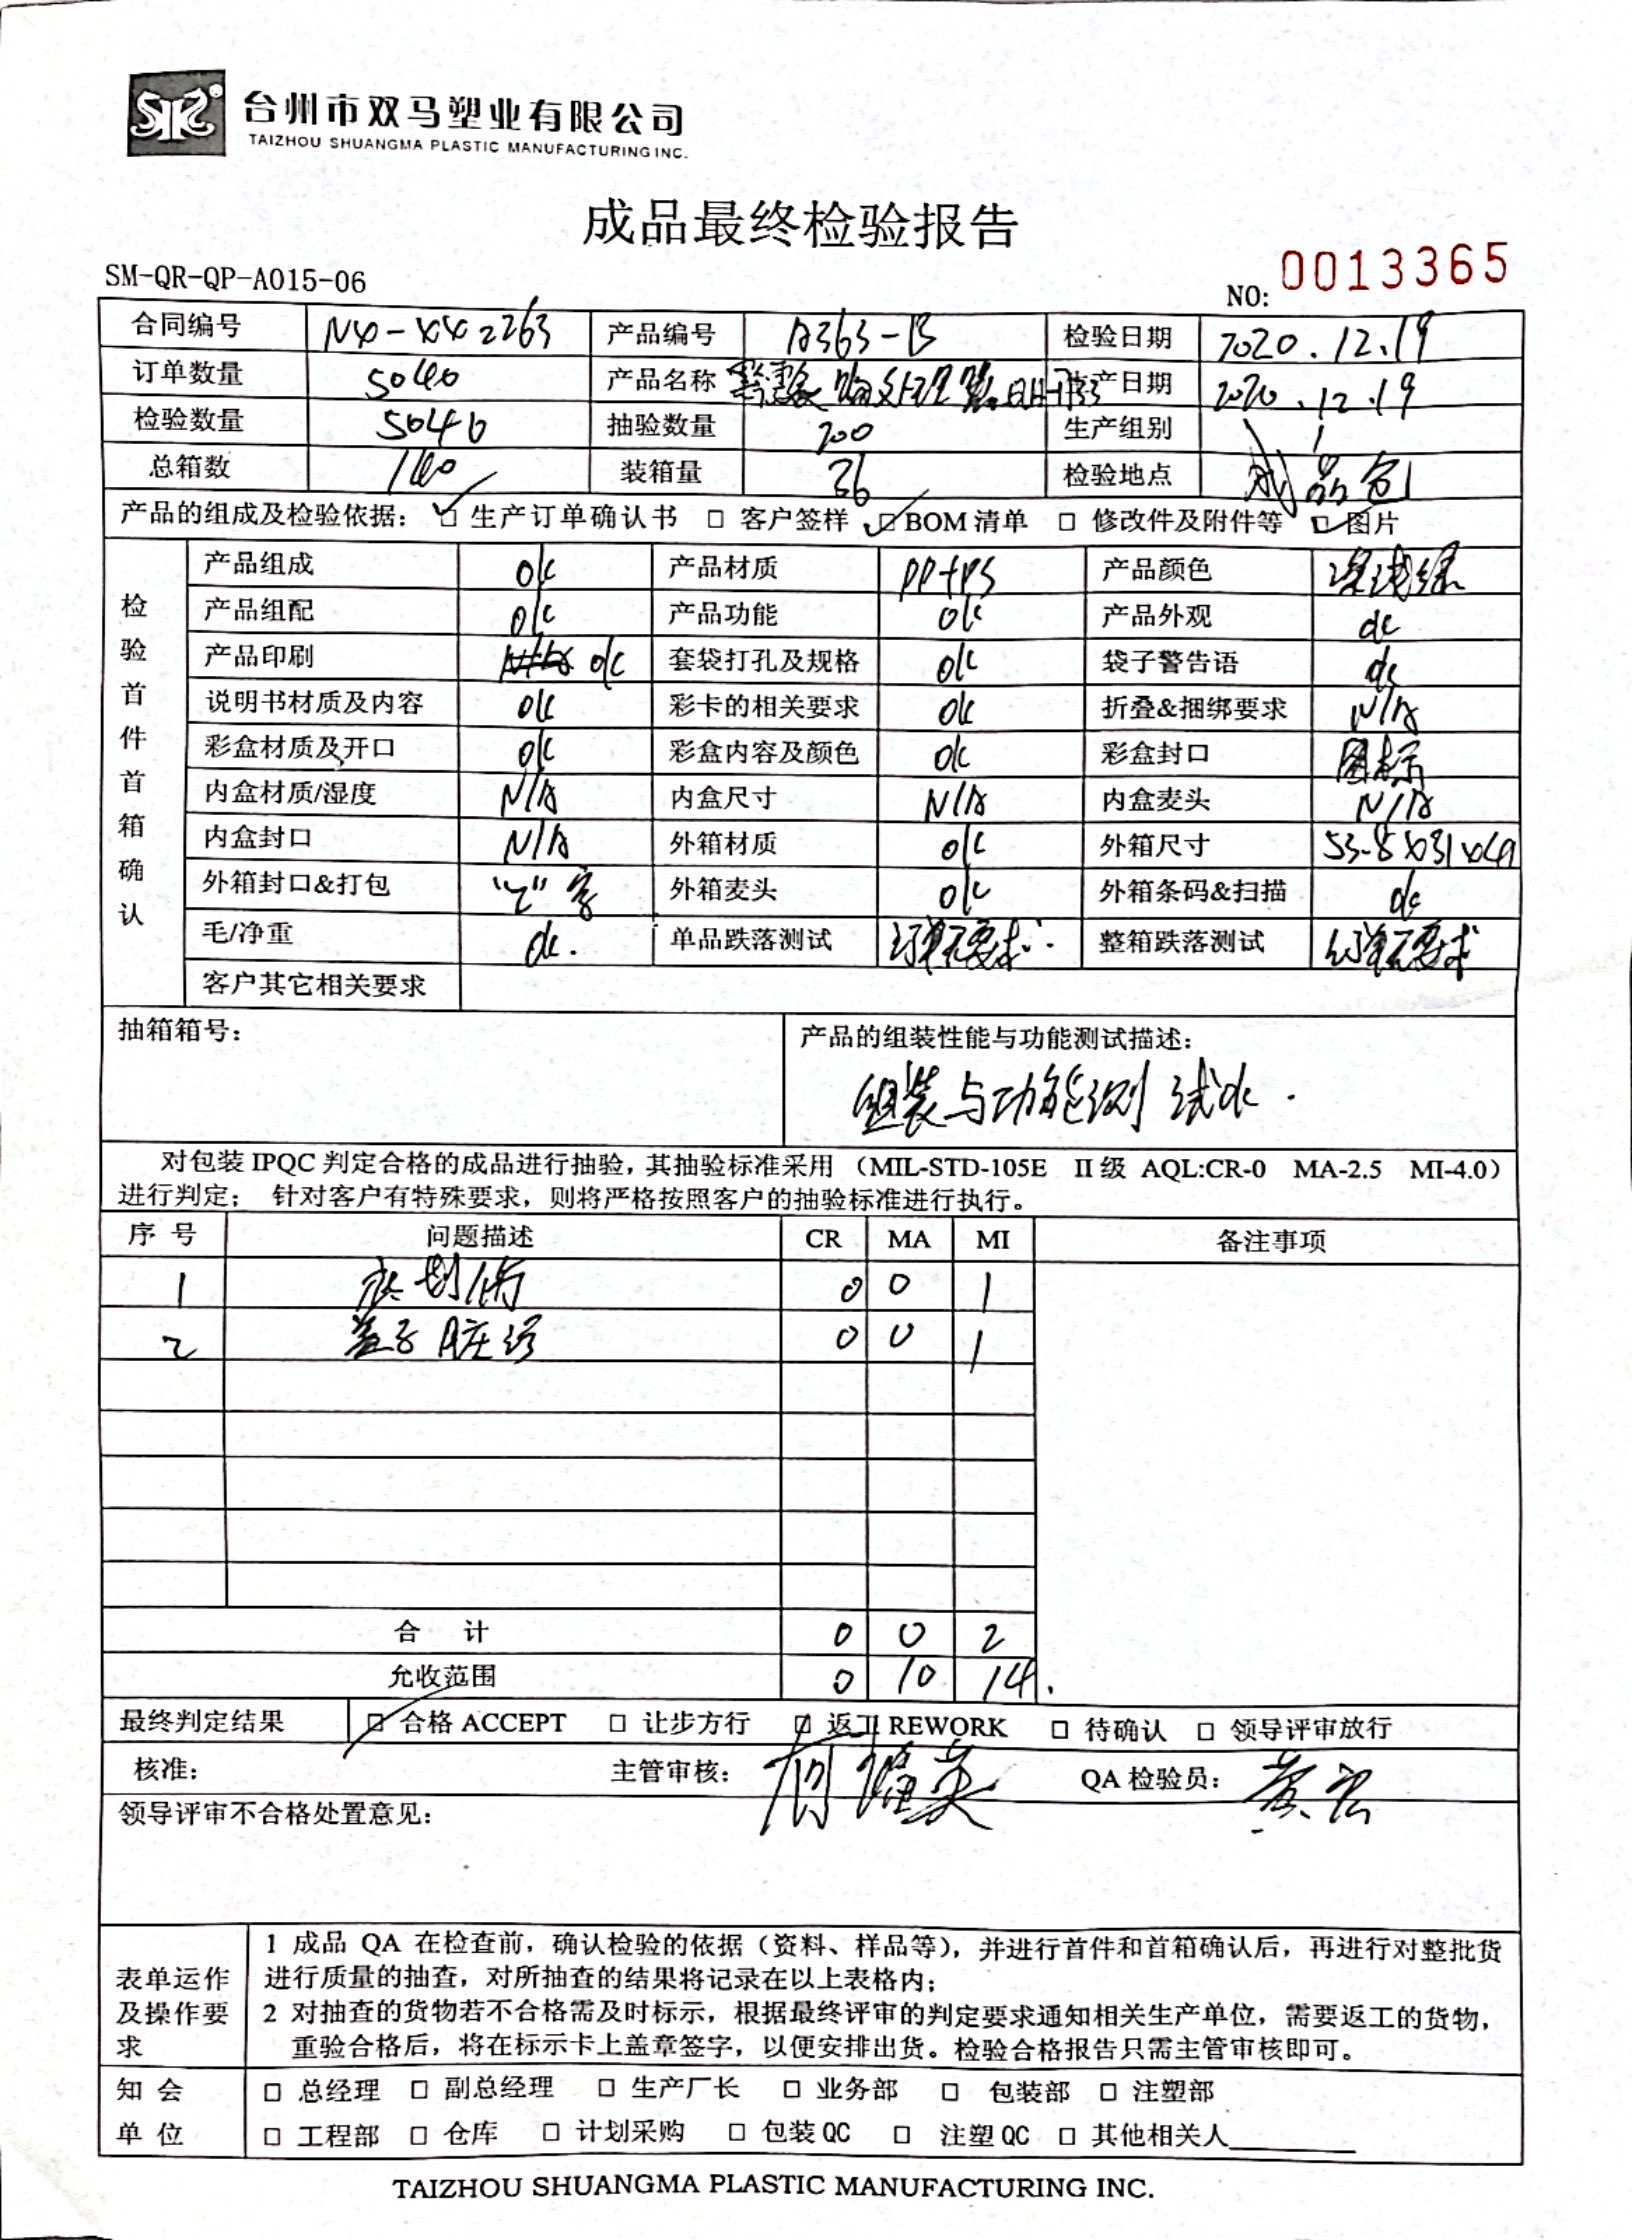 台州市双马塑业有限公司
TAIZHOU SHUANGMA PLASTIC MANUFACTURING INC.
成品最终检验报告
SM-QR-QP-A015-06 NO: 0013365
合同编号 产品编号 A363-B 检验日期 2020.12.19
订单数量 5040 产品名称 生产日期 2020.12.19
检验数量 5040 抽验数量 200 生产组别
总箱数 140 装箱量 36 检验地点 成品包
产品的组成及检验依据: □ 生产订单确认书 □ 客户签样 □ BOM 清单 □ 修改件及附件等 □ 图片
检验首件首箱确认
产品组成 ok 产品材质 PP+PS 产品颜色
产品组配 ok 产品功能 ok 产品外观 ok
产品印刷 ok 套袋打孔及规格 ok 袋子警告语 ok
说明书材质及内容 ok 彩卡的相关要求 ok 折叠&捆绑要求 N/A
彩盒材质及开口 ok 彩盒内容及颜色 ok 彩盒封口 图标
内盒材质/湿度 N/A 内盒尺寸 N/A 内盒麦头 N/A
内盒封口 N/A 外箱材质 ok 外箱尺寸
外箱封口&打包 “Z”字 外箱麦头 ok 外箱条码&扫描 ok
毛/净重 ok. 单品跌落测试 订单无要求. 整箱跌落测试 订单无要求
客户其它相关要求
抽箱箱号: 产品的组装性能与功能测试描述:
组装与功能测试ok.
对包装 IPQC 判定合格的成品进行抽验,其抽验标准采用 (MIL-STD-105E II 级 AQL:CR-0 MA-2.5 MI-4.0)
进行判定; 针对客户有特殊要求, 则将严格按照客户的抽验标准进行执行。
序号 问题描述 CR MA MI 备注事项
1 划伤 0 0 1
2 盖子脏污 0 0 1
合 计 0 0 2
允收范围 0 10 14.
最终判定结果 □ 合格 ACCEPT □ 让步方行 □ 返工 REWORK □ 待确认 □ 领导评审放行
核准: 主管审核: QA 检验员: 黄宏
领导评审不合格处置意见:
表单运作及操作要求
1 成品 QA 在检查前, 确认检验的依据 (资料、样品等), 并进行首件和首箱确认后, 再进行对整批货
进行质量的抽查, 对所抽查的结果将记录在以上表格内;
2 对抽查的货物若不合格需及时标示, 根据最终评审的判定要求通知相关生产单位, 需要返工的货物,
重验合格后, 将在标示卡上盖章签字, 以便安排出货。检验合格报告只需主管审核即可。
知会 □ 总经理 □ 副总经理 □ 生产厂长 □ 业务部 □ 包装部 □ 注塑部
单位 □ 工程部 □ 仓库 □ 计划采购 □ 包装 QC □ 注塑 QC □ 其他相关人
TAIZHOU SHUANGMA PLASTIC MANUFACTURING INC.